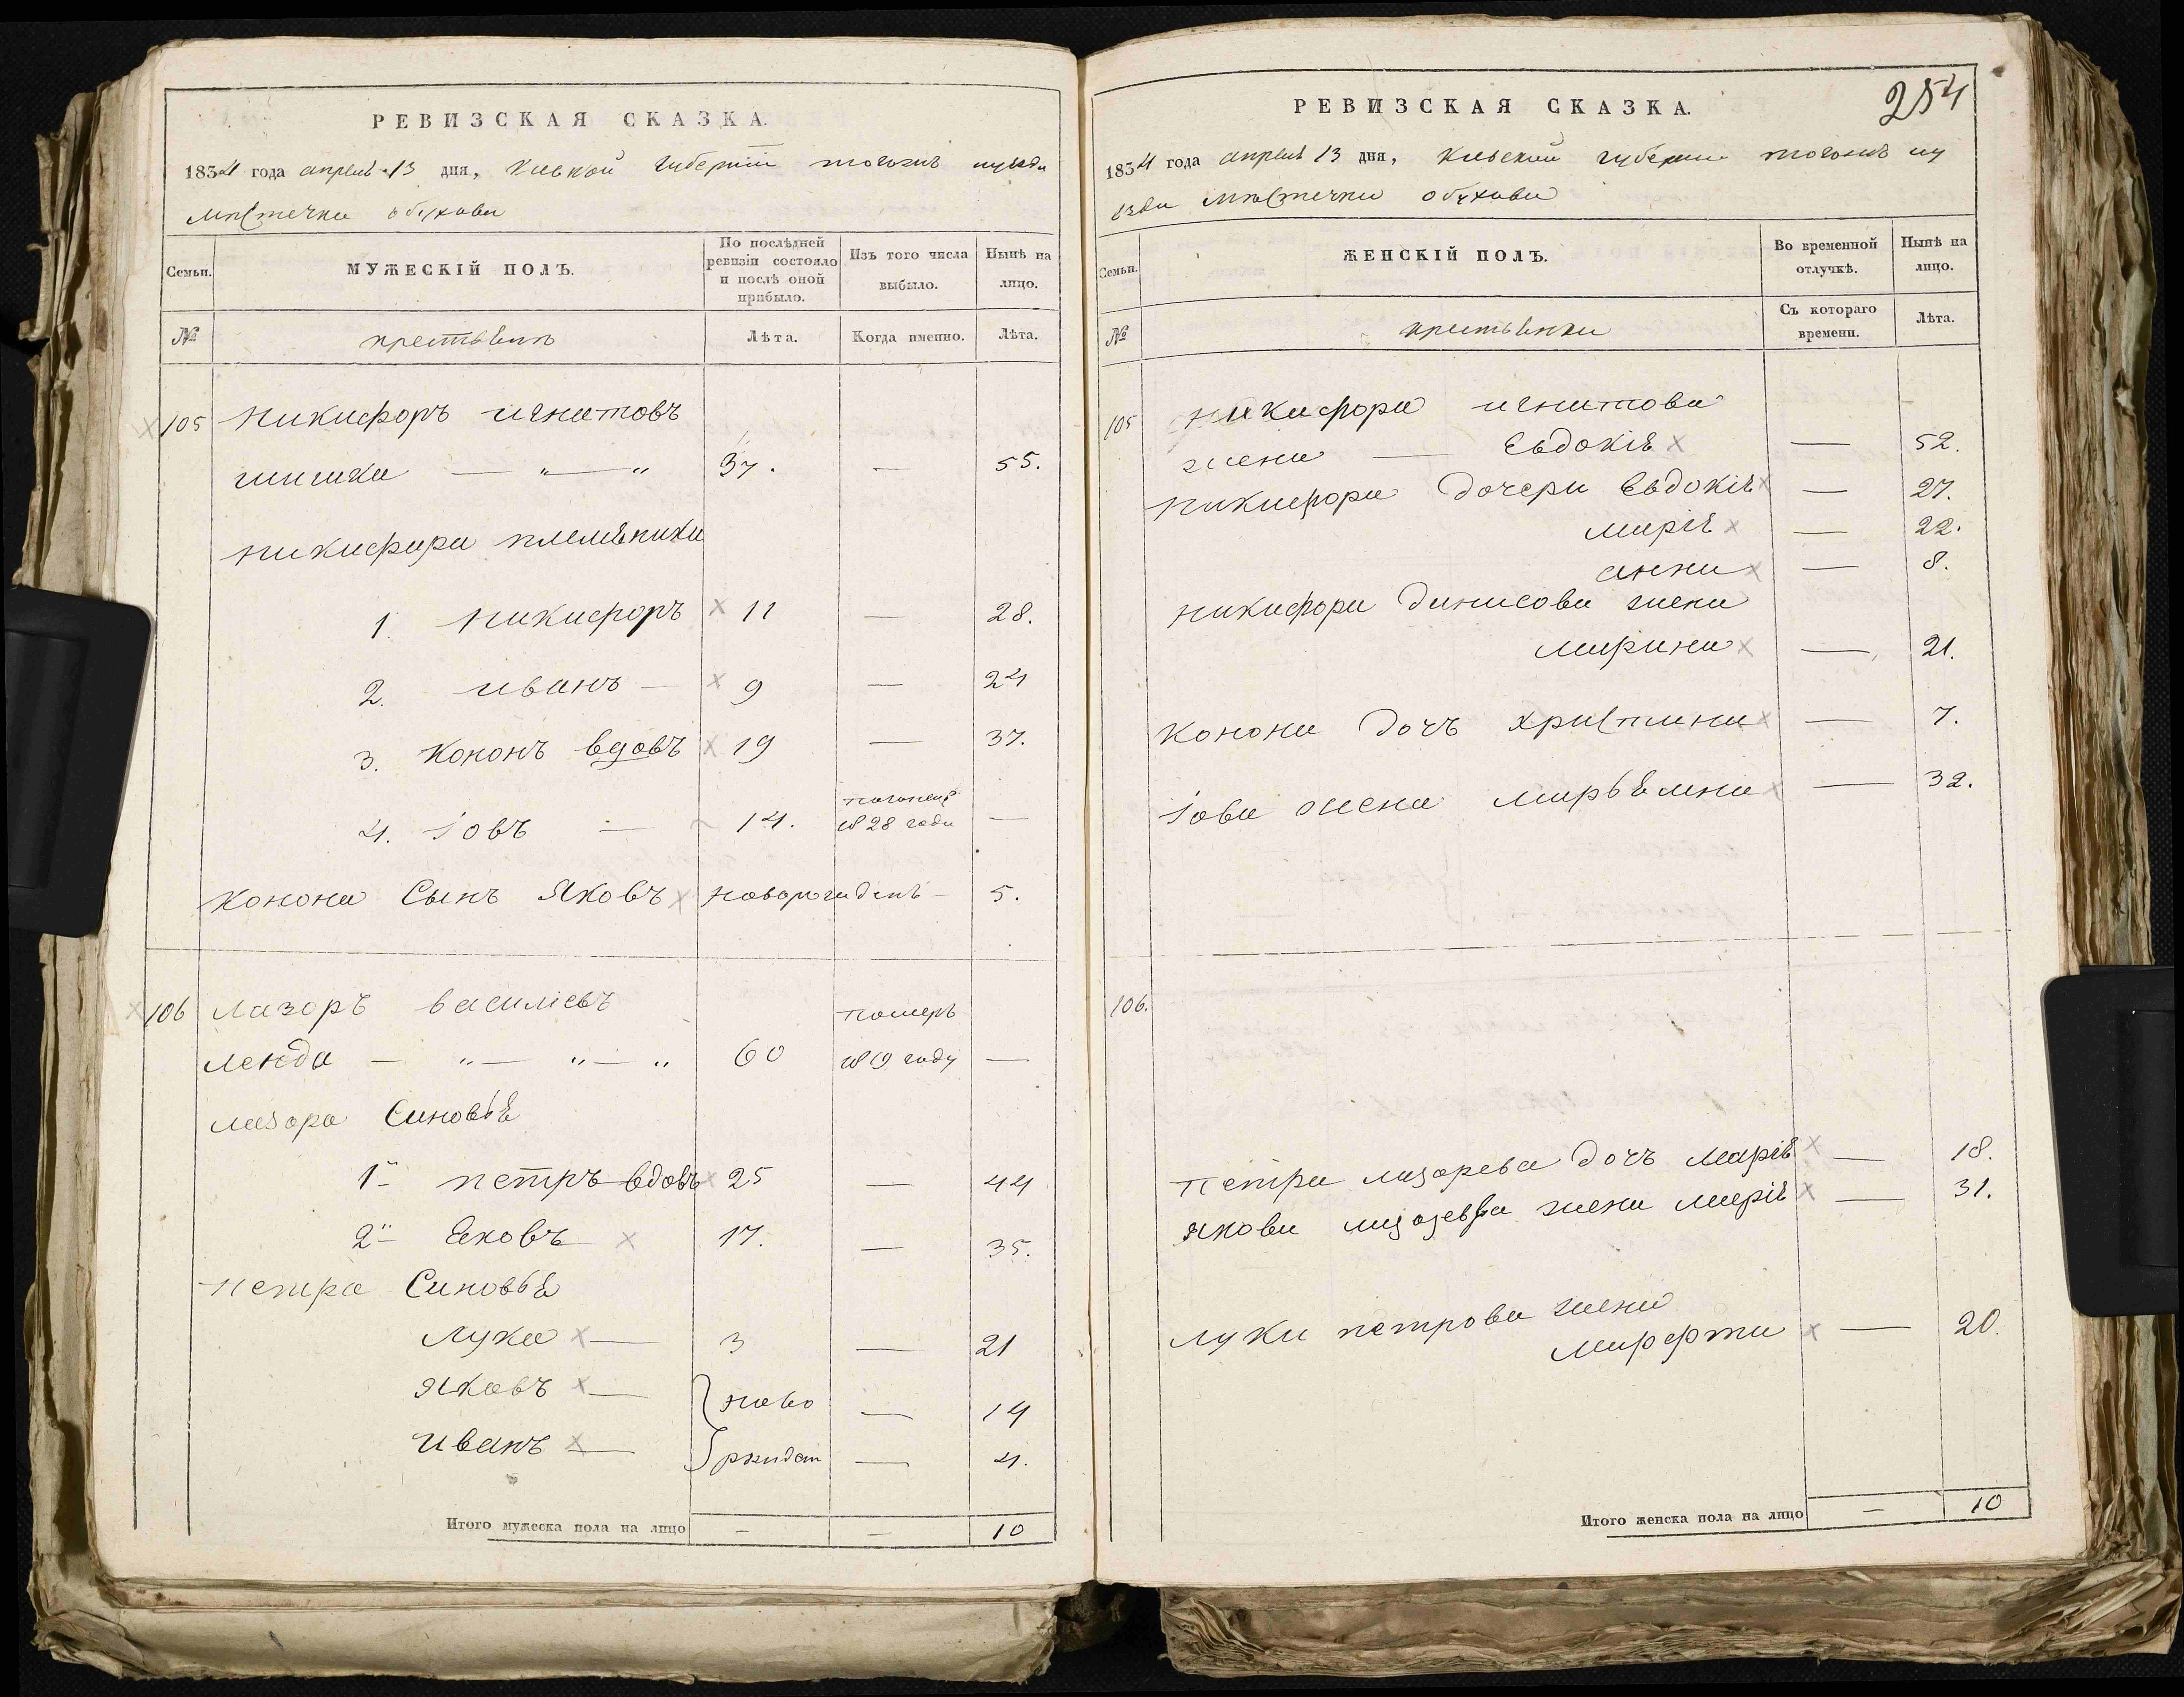 РЕВИЗСКАЯ СКАЗКА.
1834 года апреля 13 дня, Киевкой губернии тогожъ
местечка обухова
Семьи.
МУЖЕСКІЙ ПОЛЪ.
По послѣдней ревизіи состояло и послѣ оной прибыло.
Изъ того числа выбыло.
Нынѣ на лицо.
№
Лѣта.
Когда именно.
Лѣта.
105 Никифоръ игнатовъ
шишка — „ — „ 37. — 55.
никифора племѣники
1. Никифоръ 11 — 28.
2. иванъ — 9 — 24
3. Кононъ вдовъ 19 — 37.
4. Іовъ — 14. 1828 года —
Конона Сынъ Яковъ — 5.
106 Лазоръ василіевъ померъ
ленда — „ — „ — „ 60 1819 году —
лазора Синовья
1й петръ вдовъ 25 — 44
2й Яковъ 17. — 35.
петра Синовья
Лука — 3 — 21
Яковъ — ново — 14
иванъ — — 4.
Итого мужеска пола на лицо — — 10
254
РЕВИЗСКАЯ СКАЗКА.
1834 года апреля 13 дня, Киевской губернии тогожъ уу
езда местечка обухова
Семьи.
ЖЕНСКІЙ ПОЛЪ.
Во временной отлучкѣ.
Нынѣ на лицо.
№
Съ котораго времени.
Лѣта.
105 никифора игнатова
жена — Евдокія — 52.
никифора дочери Евдокія — 27.
марія — 22.
анна — 8.
никифора динисова жена
марина — 21.
Конона дочъ христина — 7.
Іова жена маръямна — 32.
106.
Петра лазорева дочъ марія — 18.
якова жена марія — 31.
луки петрова жена
марфта — 20.
Итого женска пола на лицо — 10